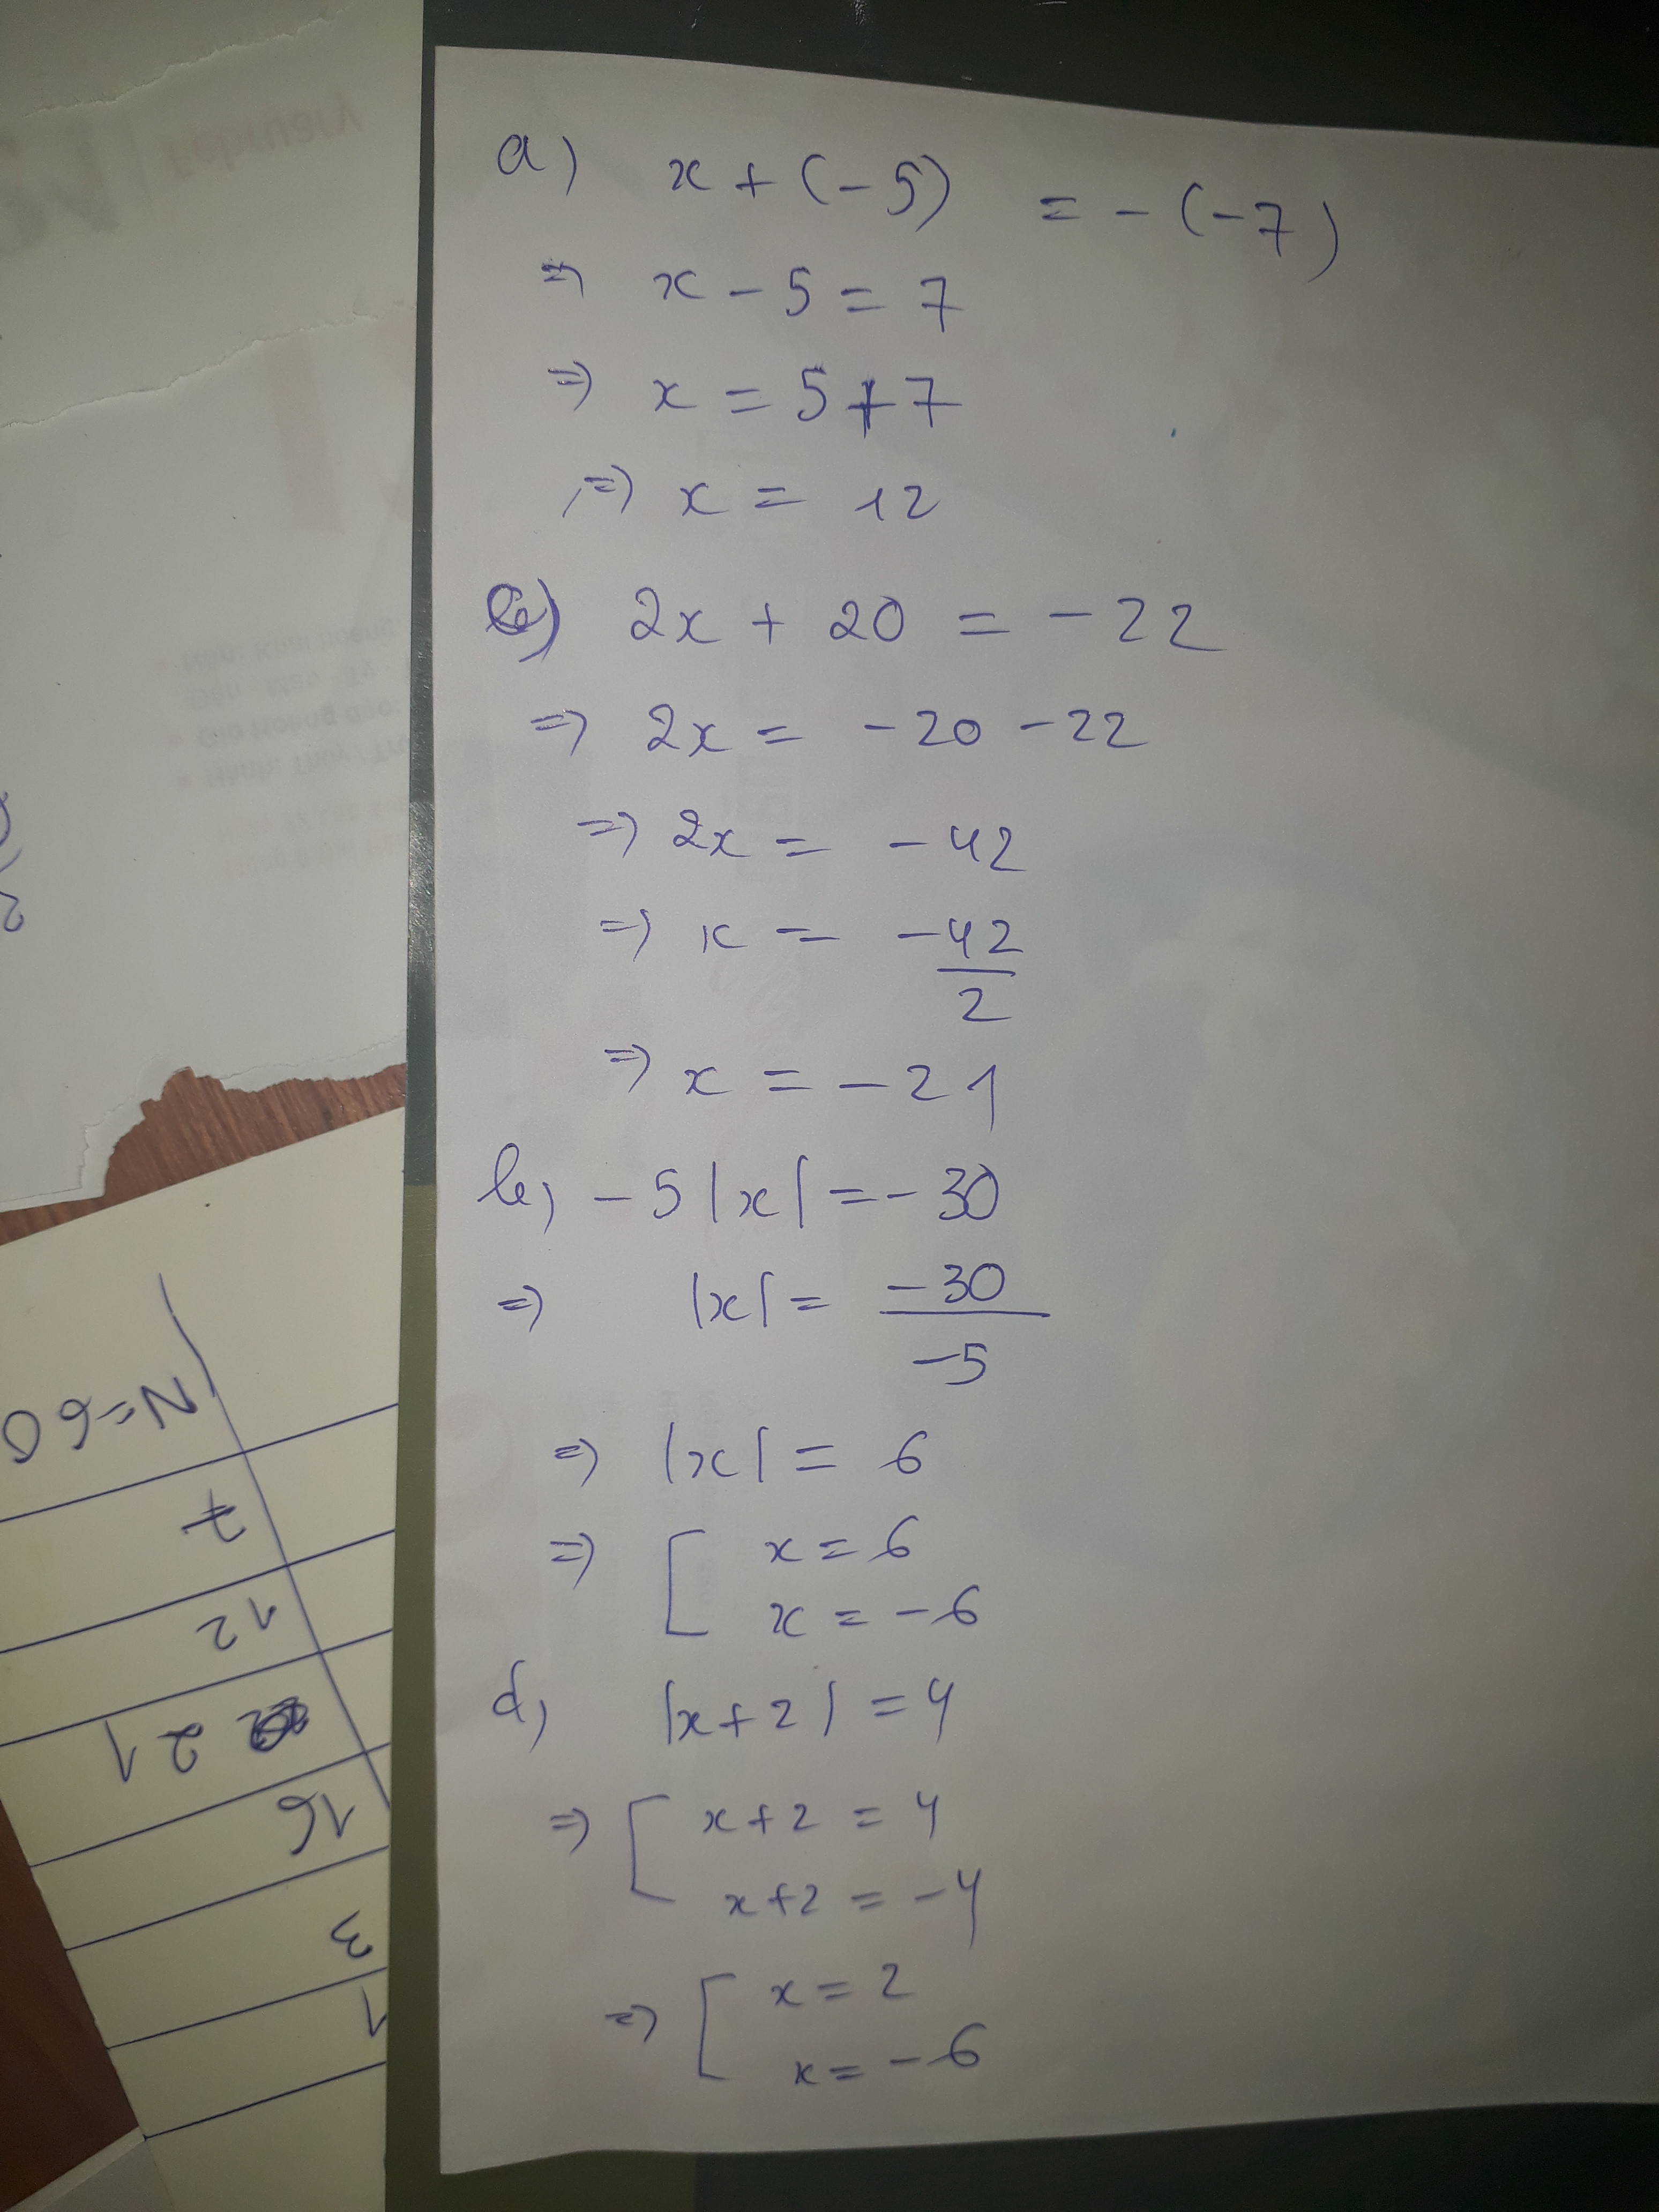 a) x + (-5) = -(-7)
=> x - 5 = 7
=> x = 5 + 7
=> x = 12
c) 2x + 20 = -22
=> 2x = -20 -22
=> 2x = -42
=> x = -42/2
=> x = -21
b, -5|x| = -30
=> |x| = -30/-5
=> |x| = 6
=> [ x = 6
x = -6
d, |x+2| = 4
=> [ x+2 = 4
x+2 = -4
=> [ x = 2
x = -6
February
N=60
7
12
21
16
3
1
2